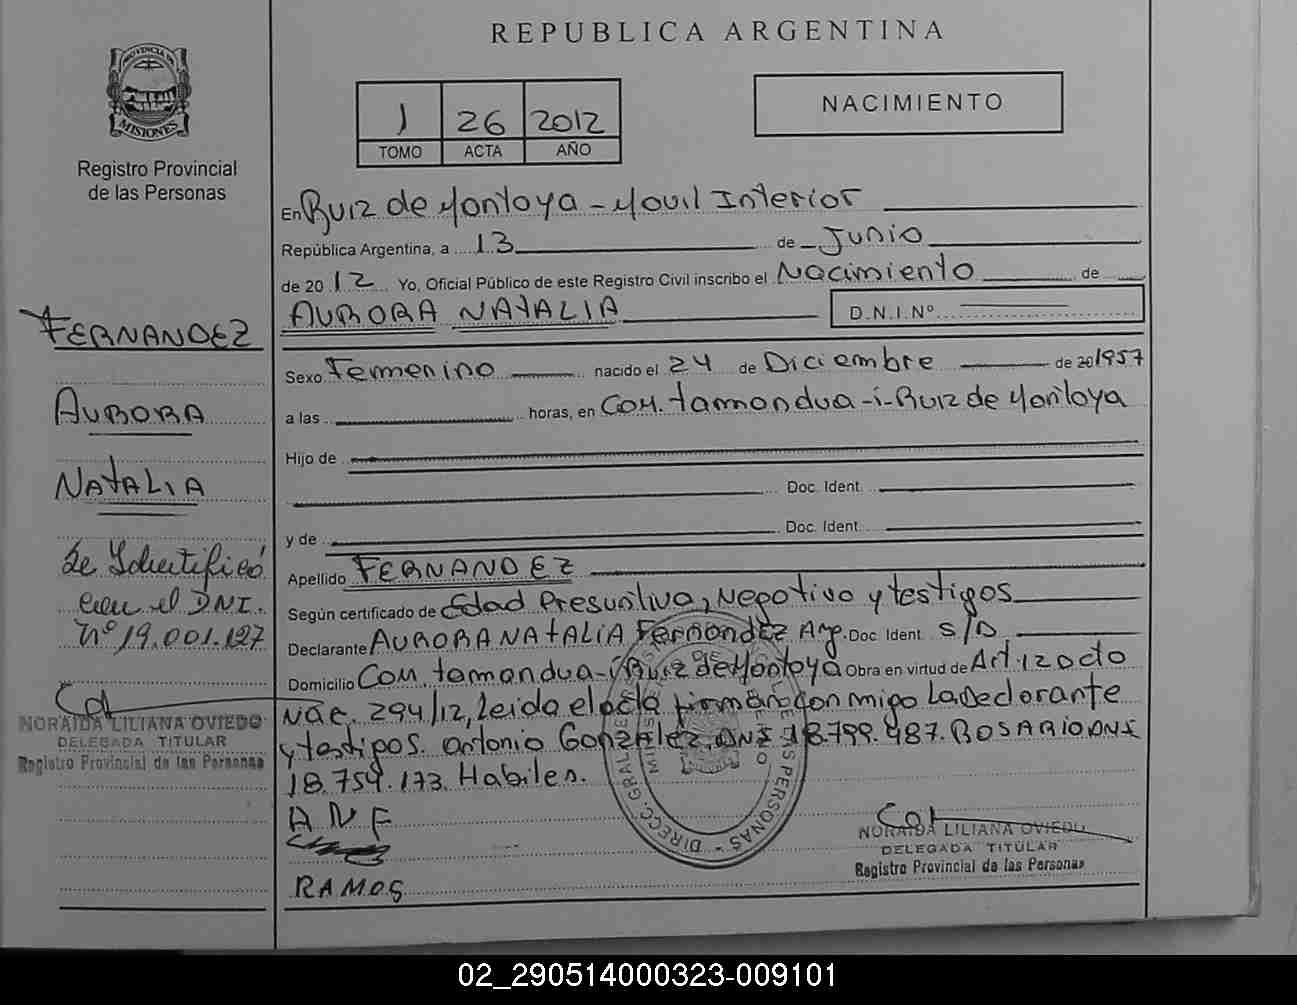 REPUBLICA ARGENTINA
PROVINCIA DE
MISIONES
Registro Provincial
de las Personas
1 26 2012
TOMO ACTA AÑO
NACIMIENTO
En Ruiz de Montoya - Movil Interior
República Argentina, a 13 de Junio
de 2012 Yo, Oficial Público de este Registro Civil inscribo el Nacimiento de
AURORA NATALIA D.N.I.Nº
Sexo Femenino nacido el 24 de Diciembre de 20 1957
a las horas, en Com. tamandua-i-Ruiz de Montoya
Hijo de
Doc. Ident.
y de Doc. Ident.
Apellido FERNANDEZ
Según certificado de Edad Presuntiva, Negativo y testigos
Declarante AURORA NATALIA Fernandez Arg. Doc. Ident. S/D
Domicilio Com. tamandua-i Ruiz de Montoya Obra en virtud de Art. 12 acta
294/12, Leida el acta firman conmigo La Declarante
y testigos. Antonio Gonzalez, DNI 18.799.487. ROSARIO DNI
18.759.173. Habiles.
A N F
RAMOS
NORAIDA LILIANA OVIEDO
DELEGADA TITULAR
Registro Provincial de las Personas
FERNANDEZ
AURORA
NATALIA
Se Identificó
con el DNI.
Nº 19.001.127
NORAIDA LILIANA OVIEDO
DELEGADA TITULAR
Registro Provincial de las Personas
DIRECC. GRAL. DE LAS PERSONAS
02_290514000323-009101